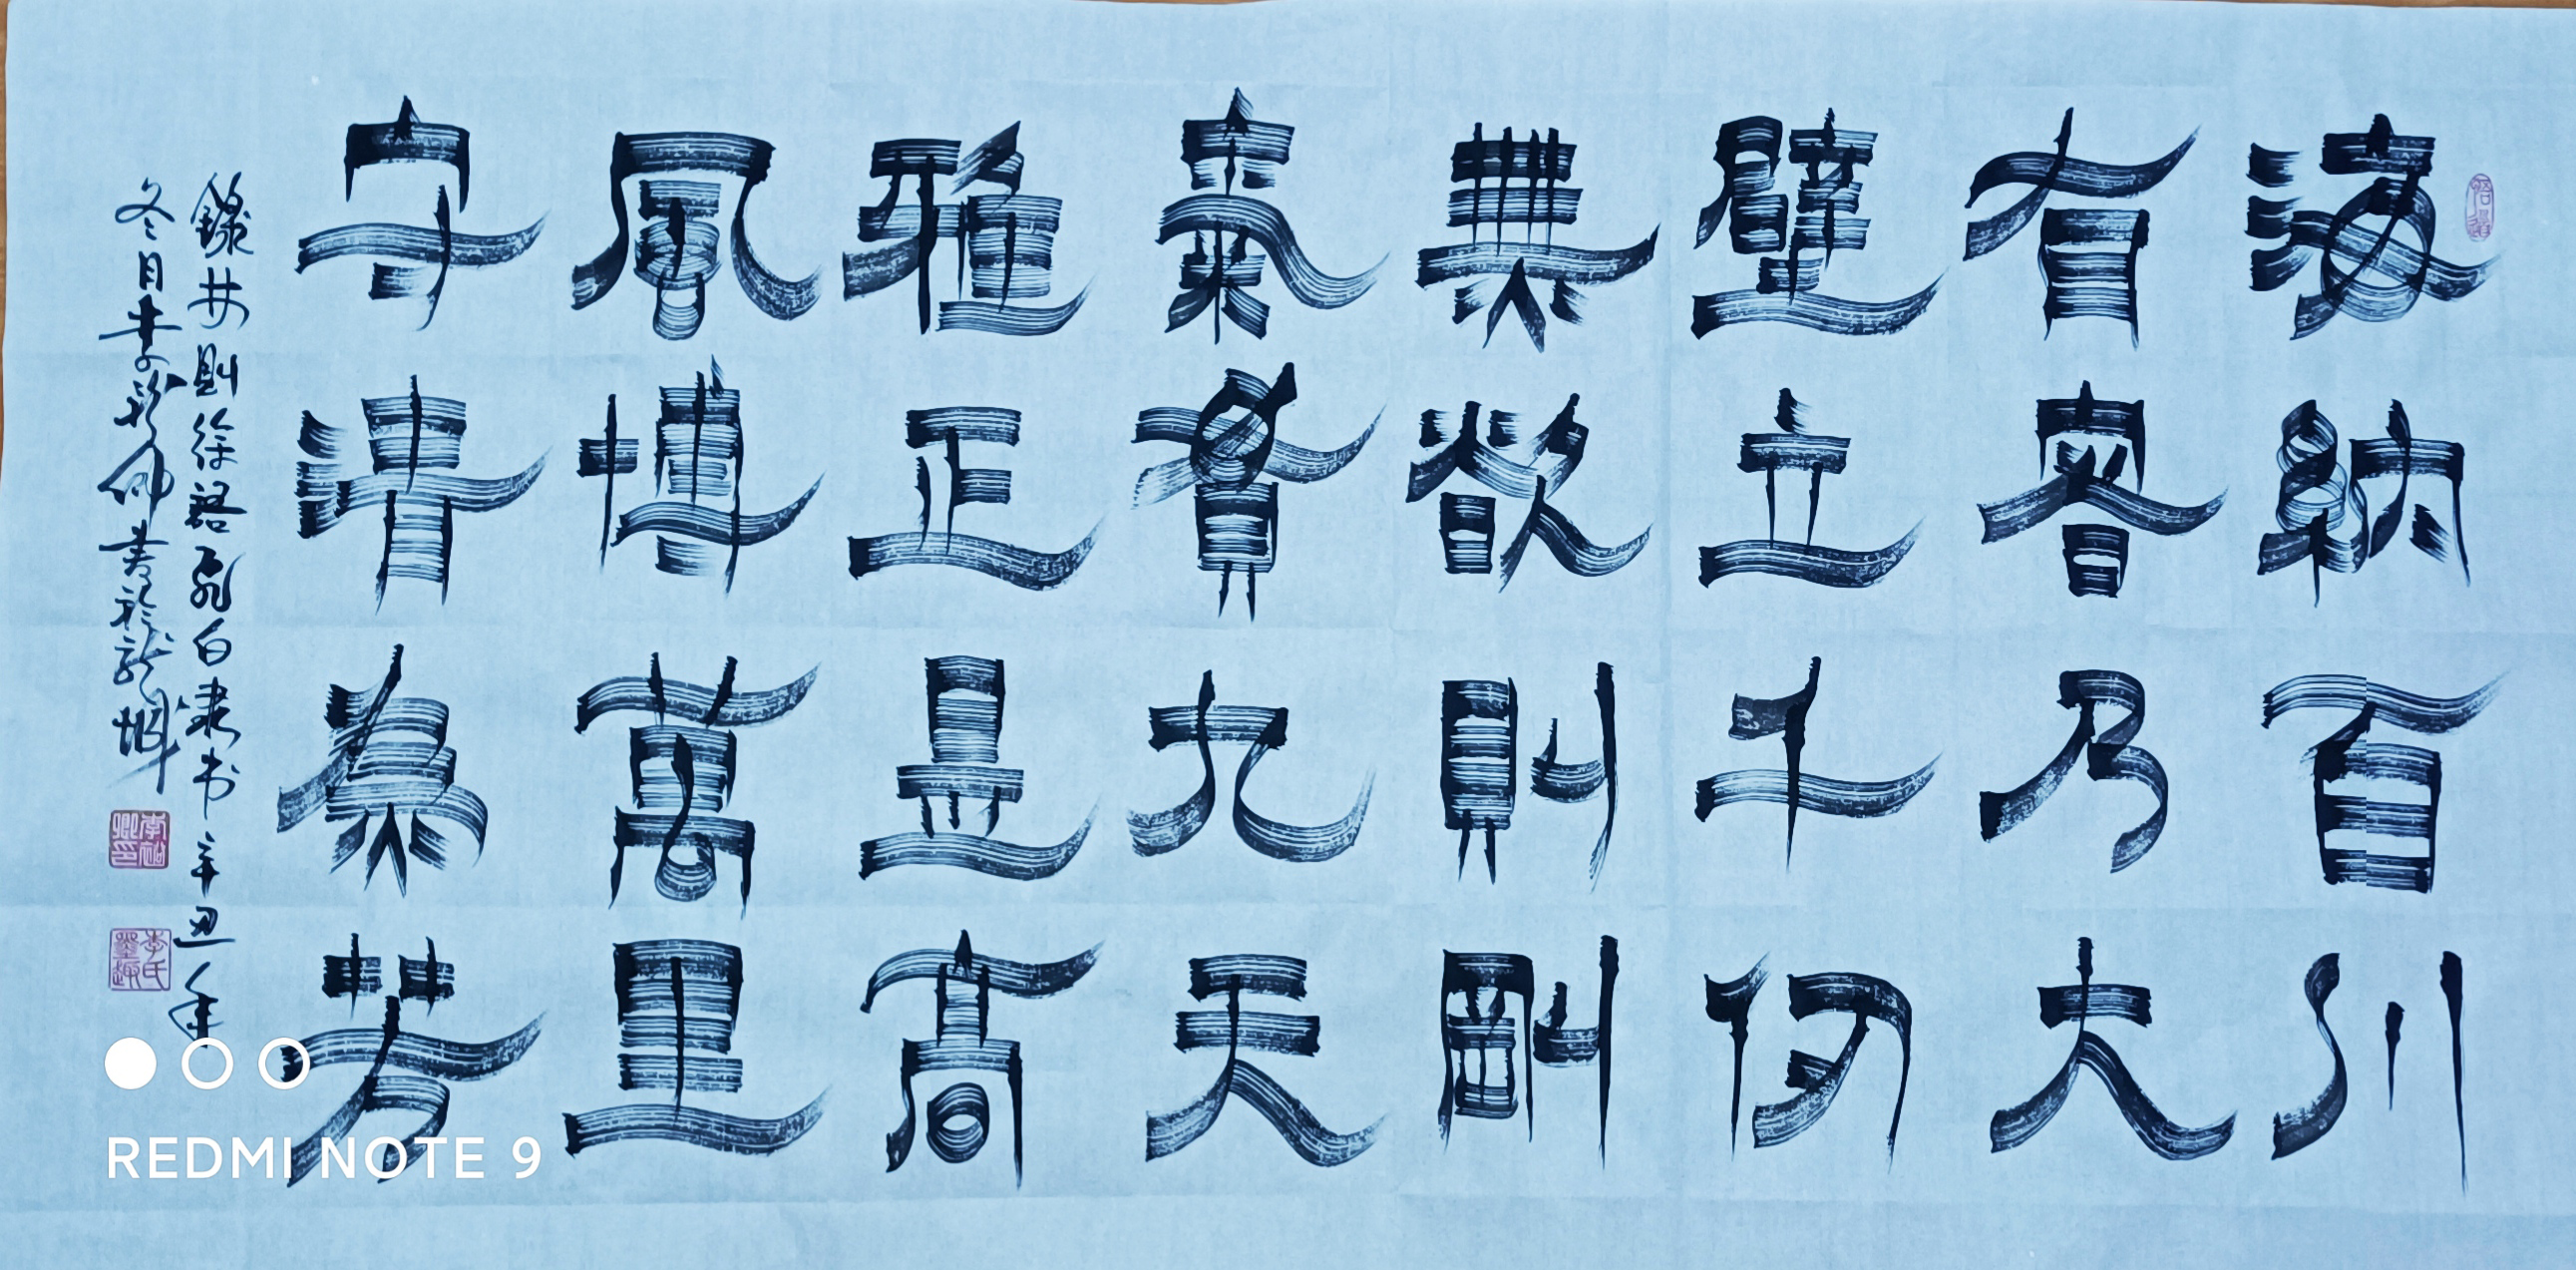 海納百川
有容乃大
壁立千仞
無欲則剛
氣貫九天
雅正是高
風博萬里
守清為芳
錄林則徐語飛白隸书辛丑年
冬月李卿書於龍城
李氏墨趣
REDMI NOTE 9